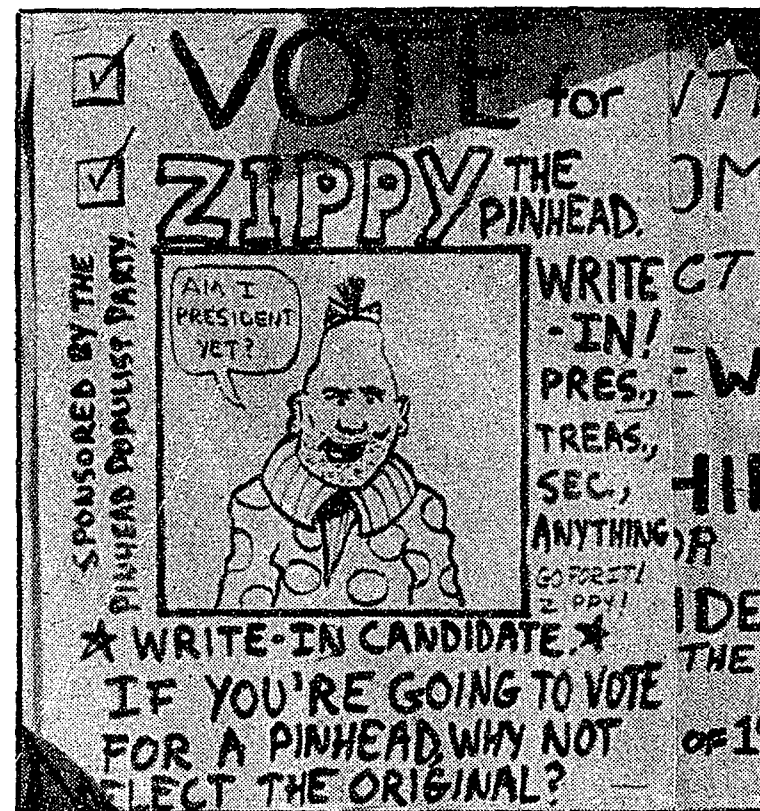 VOTE for
ZIPPY THE
PINHEAD.
SPONSORED BY THE
PINHEAD POPULIST PARTY.
AM I
PRESIDENT
YET?
WRITE
-IN!
PRES.,
TREAS.,
SEC.,
ANYTHING
GO FOR IT!
ZIPPY!
★ WRITE-IN CANDIDATE. ★
IF YOU'RE GOING TO VOTE
FOR A PINHEAD, WHY NOT
ELECT THE ORIGINAL?
CT
EW
IDE
THE
OF 1